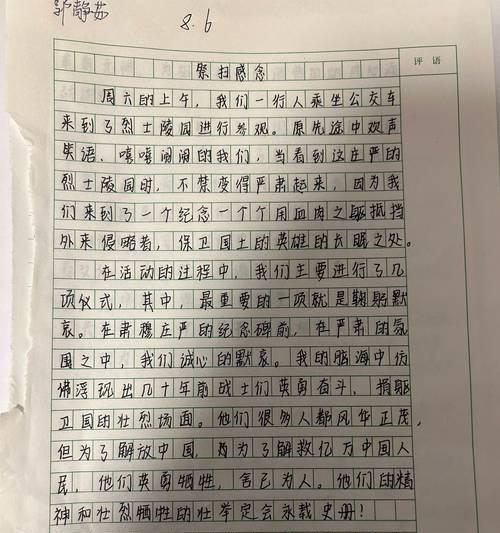 郭静茹
8.6
评语
祭扫感念
周六的上午，我们一行人乘坐公交车
来到了烈士陵园进行参观。原先途中欢声
笑语、嘻嘻闹闹的我们，当看到这庄严的
烈士陵园时，不禁变得严肃起来，因为我
们来到了一个纪念一个个用血肉之躯抵挡
外来侵略者，保卫国土的英雄的长眠之处。
在活动的过程中，我们主要进行了几
项仪式，其中，最重要的一项就是鞠躬默
哀。在肃穆庄严的纪念碑前，在严肃的氛
围之中，我们诚心的默哀。我的脑海中仿
佛浮现出几十年前战士们英勇奋斗、捐躯
卫国的壮烈场面。他们很多人都风华正茂，
但为了解放中国，为了解救亿万中国人
民，他们英勇牺牲，舍己为人。他们的精
神和壮烈牺牲的壮举定会永载史册！